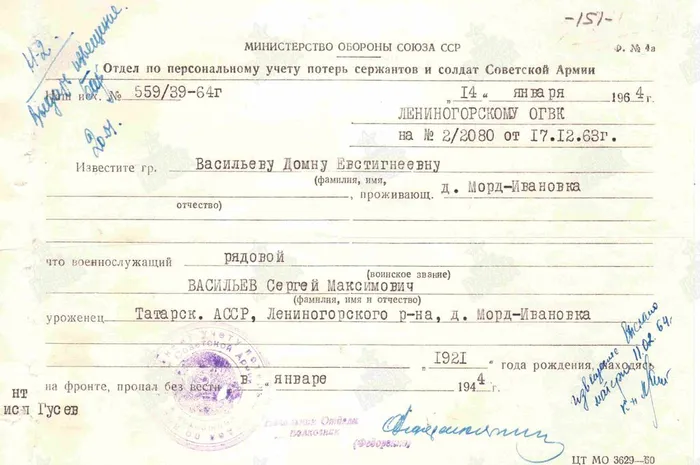 -151-
МИНИСТЕРСТВО ОБОРОНЫ СОЮЗА ССР
Ф. № 4а
Отдел по персональному учету потерь сержантов и солдат Советской Армии
И-2.
Выслать извещение
исх. № 559/39-64г
"14" января 1964г.
ЛЕНИНОГОРСКОМУ ОГВК
на № 2/2080 от 17.12.63г.
Известите гр. Васильеву Домну Евстигнеевну
(фамилия, имя,
отчество)
, проживающ. д. Морд-Ивановка
что военнослужащий рядовой
(воинское звание)
ВАСИЛЬЕВ Сергей Максимович
(фамилия, имя и отчество)
уроженец Татарск. АССР, Лениногорского р-на, д. Морд-Ивановка
1921 года рождения, находясь
на фронте, пропал без вести в январе 1944г.
НТ
исп Гусев
Начальник Отдела
полковник
(Федорович)
извещение выслано
11.02.64г.
ЦТ МО 3629—60